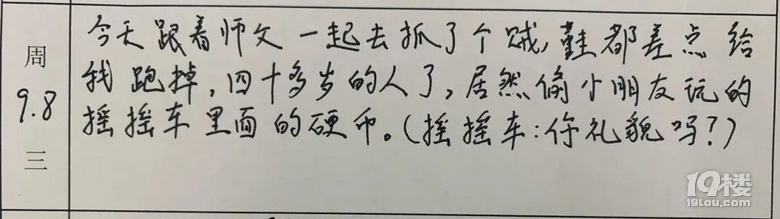 周
9.8
三
今天跟着师父一起去抓了个贼,鞋都差点给
我跑掉,四十多岁的人了,居然偷小朋友玩的
摇摇车里面的硬币。(摇摇车:你礼貌吗?)
19楼
19lou.com